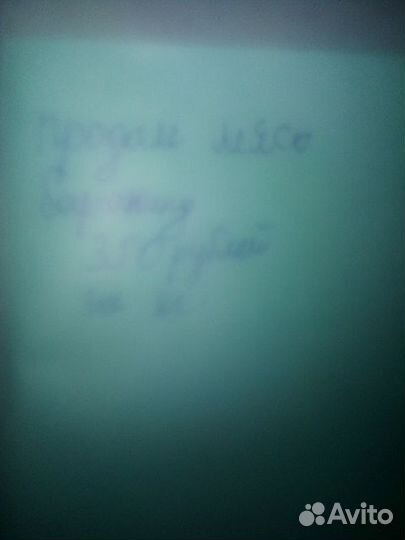 продам мясо
баранину
350 рублей
Avito